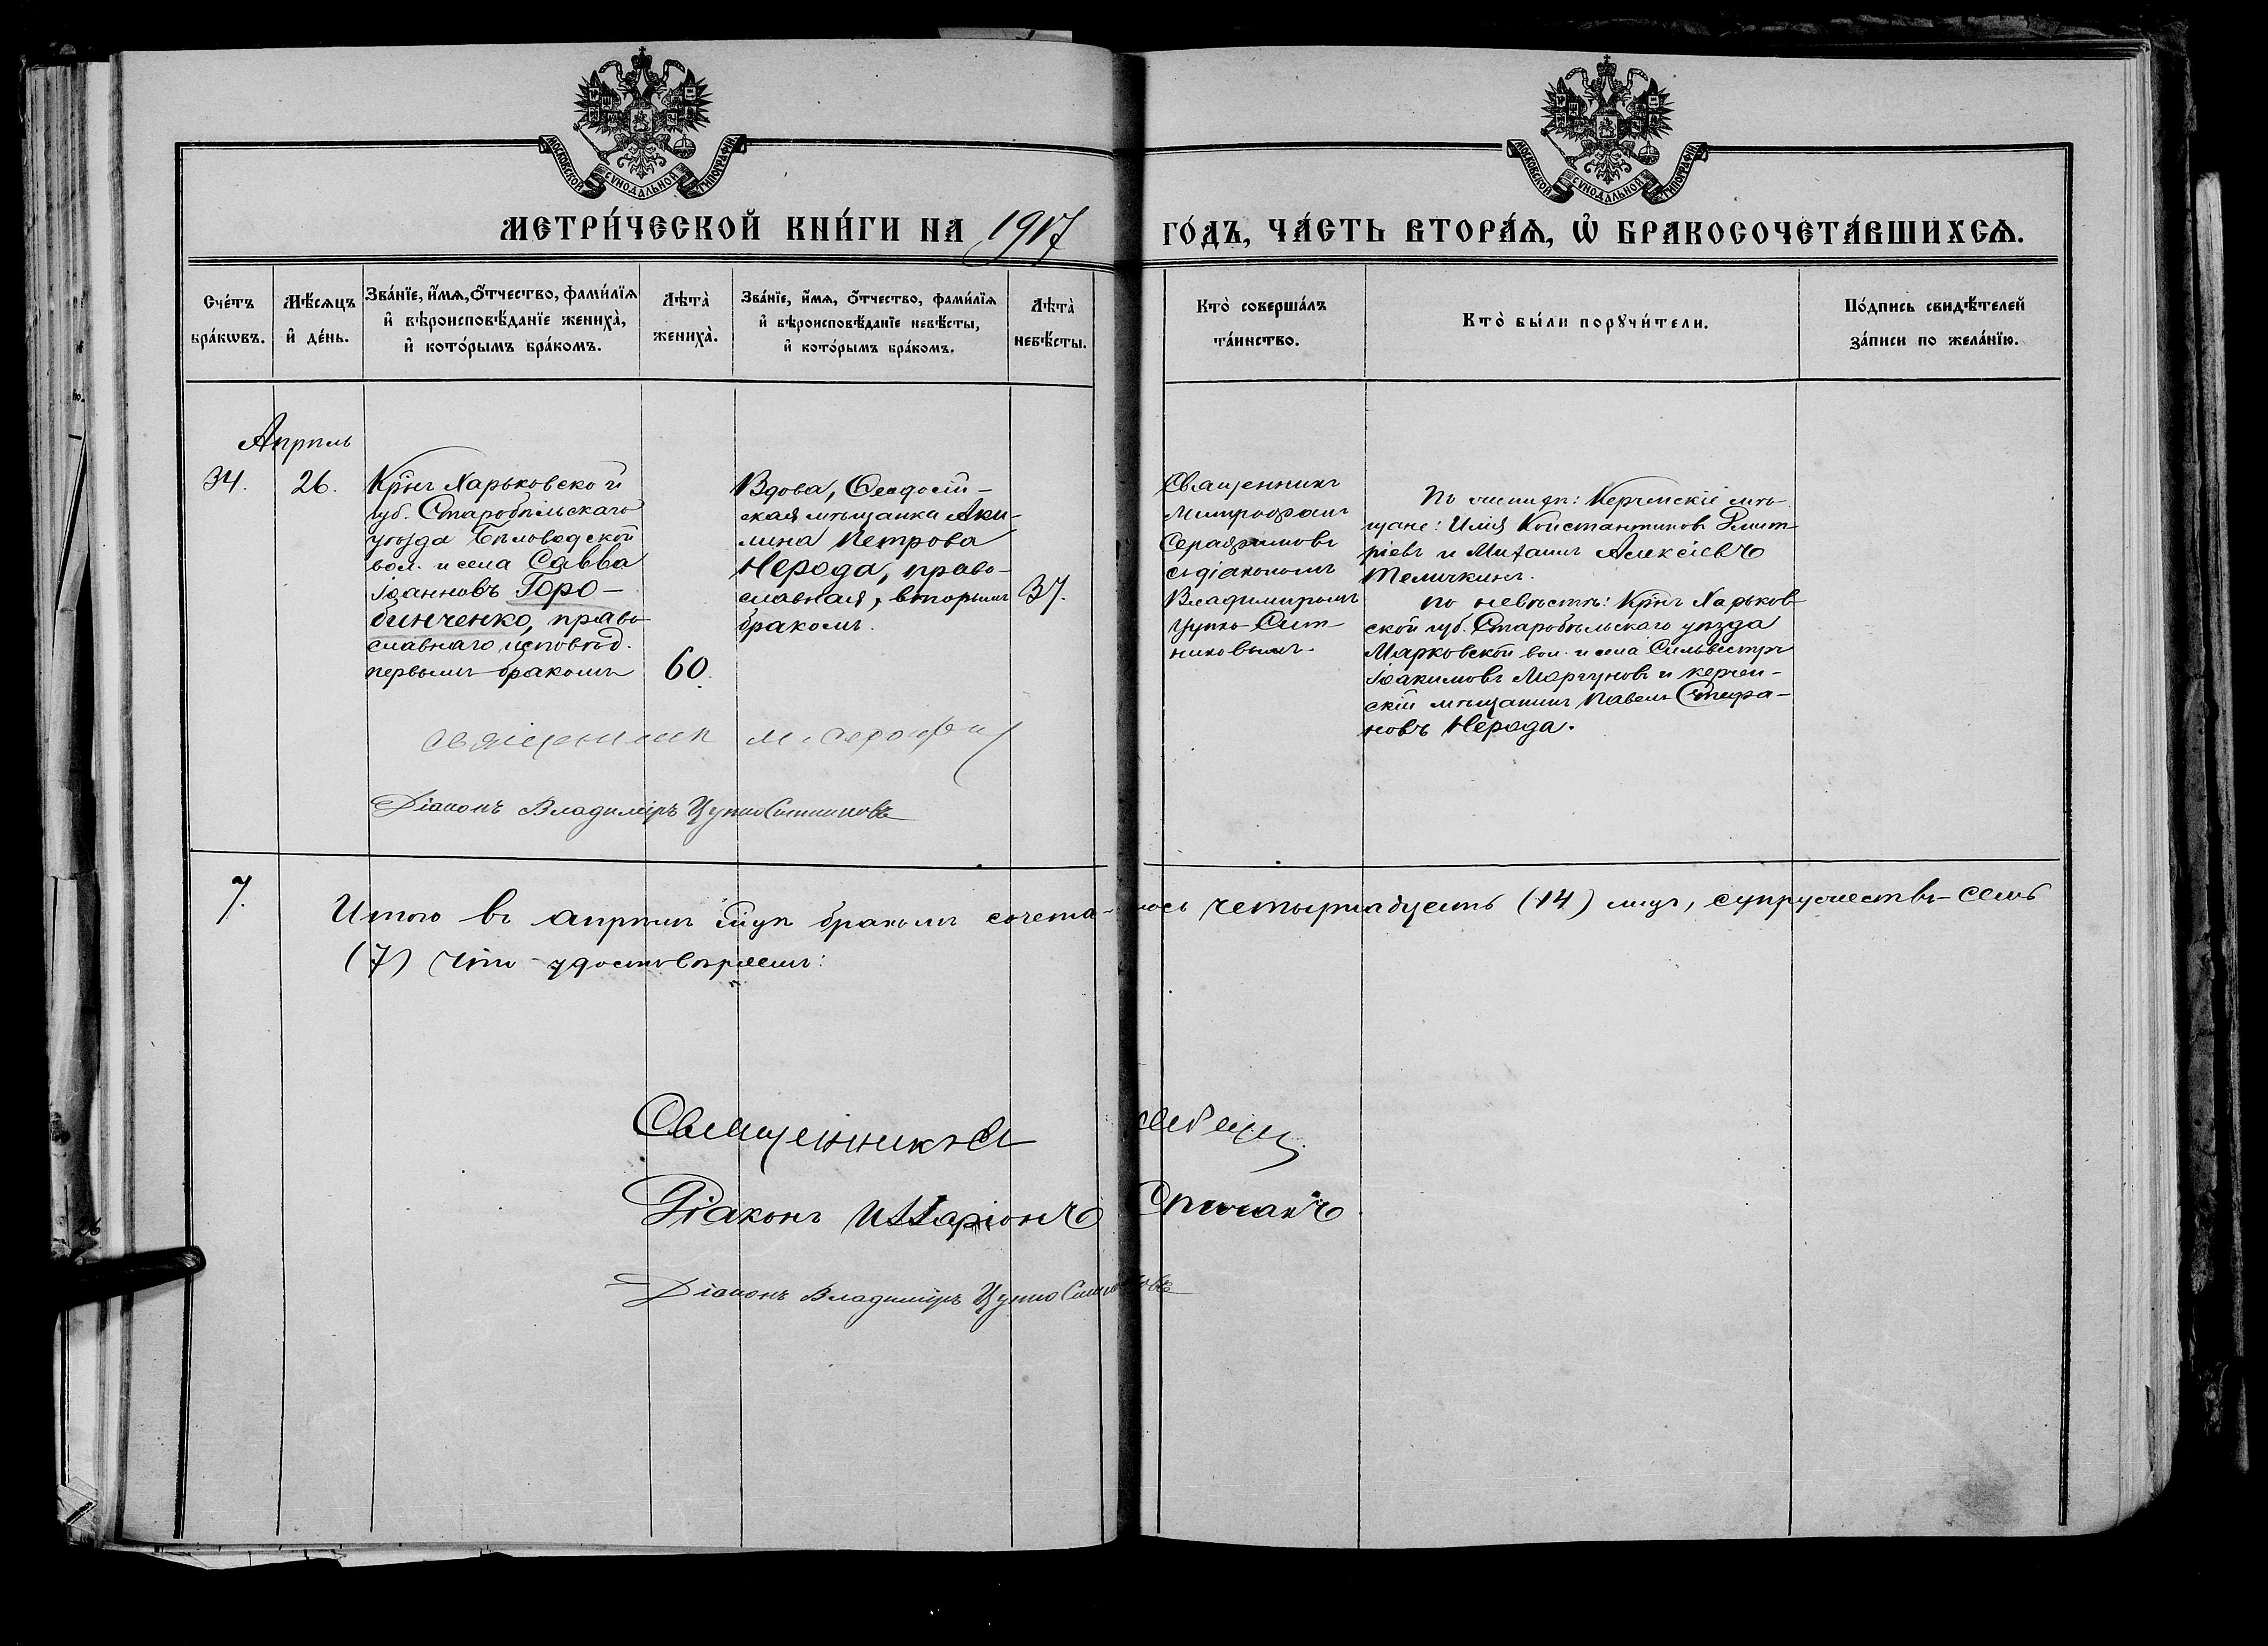 МОСКОВСКОЙ СѴНОДАЛЬНОЙ ТИПОГРАФІИ.
МОСКОВСКОЙ СѴНОДАЛЬНОЙ ТИПОГРАФІИ.
МЕТРИ́ЧЕСКОЙ КНИ́ГИ НА 1917 ГО́ДЪ, ЧА́СТЬ ВТОРА́Ѧ, Ѡ҆ БРАКОСОЧЕТА́ВШИХСѦ.
Сче́тъ
бра́кѡвъ.
Мѣ́сѧцъ
и҆ де́нь.
Зва́нїе, и҆́мѧ, о҆́тчество, фами́лїѧ
и҆ вѣроисповѣ́данїе жениха̀,
и҆ кото́рымъ бра́комъ.
Лѣта̀
жениха̀.
Зва́нїе, и҆́мѧ, о҆́тчество, фами́лїѧ
и҆ вѣроисповѣ́данїе невѣ́сты,
и҆ кото́рымъ бра́комъ.
Лѣта̀
невѣ́сты.
Кто̀ соверша́лъ
та́инство.
Кто̀ бы́ли порꙋчи́тели.
По́дпись свидѣ́телей
за́писи по жела́нїю.
Апрѣль
34.
26.
Крнъ Харьковской
губ. Старобѣльскаго
уѣзда Бѣловодской
вол. и села Савва
Іоанновъ Горо-
бинченко, право
славнаго исповѣд.
первымъ бракомъ
60.
Вдова, Ѳеодосій-
ская мѣщанка Аки-
лина Петрова
Нерода, право-
славная, вторымъ
бракомъ.
37.
Священникъ
Митрофанъ
Серафимовъ
съ діакономъ
Владимиромъ
Цупко-Сит
никовымъ.
По женихѣ: Керченскіе мѣ-
щане: Илія Константиновъ Дмит-
ріевъ и Михаилъ Алексіевъ
Теличкинъ.
по невѣстѣ: Крнъ Харьков-
ской губ. Старобѣльскаго уѣзда
Марковской вол. и села Сильвестръ
Іоакимовъ Моргуновъ и керчен-
скій мѣщанинъ Павелъ Стефа-
новъ Нерода.
Священникъ М. Серафи
Діаконъ Владиміръ Цупко Ситниковъ
7.
Итого въ апрѣлѣ мцѣ бракомъ сочета-лось четырнадцать (14) лицъ, супружествъ-семь
(7) Что удостовѣряемъ:
Священникъ
Діаконъ Илларіонъ Спичакъ
Діаконъ Владиміръ Цупко Ситниковъ